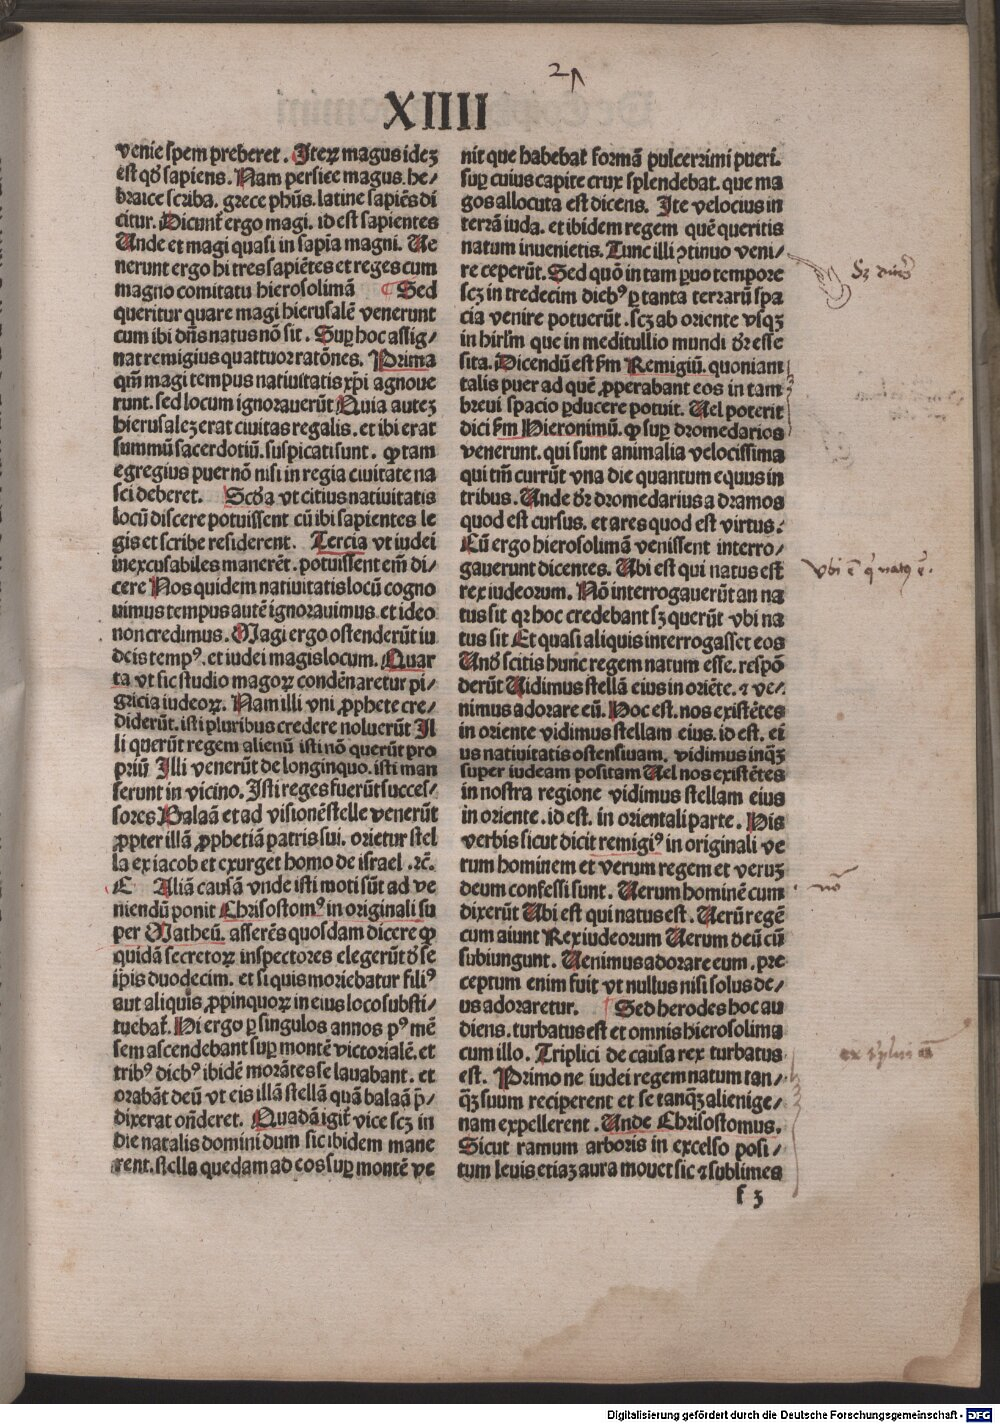 XIIII
venie spem preberet. Iteꝝ magus ideꝫ
est qđ sapiens. Nam persice magus. he⸗
braice scriba. grece ph̄us. latine sapiēs di
citur. Dicunt̄ ergo magi. id est sapientes
Unde et magi quasi in sapīa magni. Ue
nerunt ergo hi tres sapiētes et reges cum
magno comitatu hierosolimā Sed
queritur quare magi hierusalē venerunt
cum ibi dn̄s natus nō sit. Suꝑ hoc assig⸗
nat remigius quattuor ratōnes. Prima
qm̄ magi tempus natiuitatis xp̄i agnoue
runt. sed locum ignorauerūt Quia auteꝫ
hierusaleꝫ erat ciuitas regalis. et ibi erat
summū sacerdotiū. suspicati sunt. ꝙ tam
egregius puer nō nisi in regia ciuitate na
sci deberet. Scđa vt citius natiuitatis
locū discere potuissent cū ibi sapientes le
gis et scribe residerent. Tercia vt iudei
inexcusabiles manerēt. potuissent em̄ di⸗
cere Nos quidem natiuitatis locū cogno
uimus tempus autē ignorauimus. et ideo
non credimus. Magi ergo ostenderūt iu
deis tempꝰ. et iudei magis locum. Quar
ta vt sic studio magoꝝ condēnaretur pi⸗
gricia iudeoꝝ. Nam illi vni ꝓphete cre⸗
diderūt. isti pluribus credere noluerūt Il
li querūt regem alienū isti nō querūt pro
priū Illi venerūt de longinquo. isti man
serunt in vicino. Isti reges fuerūt succes⸗
sores Balaā et ad visionē stelle venerūt
ꝓpter illā ꝓphetiā patris sui. orietur stel
la ex iacob et exurget homo de israel. ꝛc̄.
C Aliā causā vnde isti moti sūt ad ve
niendū ponit Chrisostomꝰ in originali su
per Matheū. asserēs quosdam dicere ꝙ
quidā secretoꝝ inspectores elegerūt đ se
ip̄is duodecim. et si quis moriebatur filiꝰ
aut aliquis ꝓpinquoꝝ in eius loco substi⸗
tuebat̄. Hi ergo ꝑ singulos annos pꝰ mē
sem ascendebant suꝑ montē victorialē. et
tribꝰ diebꝰ ibidē morātes se lauabant. et
orabāt deū vt eis illā stellā quā balaā p̄⸗
dixerat on̄deret. Quadā igit̄ vice scꝫ in
die natalis domini dum sic ibidem mane
rent. stella quedam ad eos suꝑ montē ve
nit que habebat formā pulcerrimi pueri.
suꝑ cuius capite crux splendebat. que ma
gos allocuta est dicens. Ite velocius in
terrā iuda. et ibidem regem quē queritis
natum inuenietis. Tunc illi ꝯtinuo veni⸗
re ceperūt. Sed quō in tam ꝑuo tempore
scꝫ in tredecim diebꝰ ꝑ tanta terrarū spa
cia venire potuerūt. scꝫ ab oriente vsqꝫ
in hirlm̄ que in meditullio mundi đr esse
sita. Dicendū est ẜm Remigiū. quoniam
talis puer ad quē ꝓperabant eos in tam
breui spacio ꝑducere potuit. Uel poterit
dici ẜm Hieronimū. ꝙ suꝑ dromedarios
venerunt. qui sunt animalia velocissima
qui tm̄ currūt vna die quantum equus in
tribus. Unde đr dromedarius a dramos
quod est cursus. et ares quod est virtus.
Cū ergo hierosolimā venissent interro⸗
gauerunt dicentes. Ubi est qui natus est
rex iudeorum. Nō interrogauerūt an na
tus sit qꝛ hoc credebant sꝫ querūt vbi na
tus sit Et quasi aliquis interrogasset eos
Unđ scitis hunc regem natum esse. respō
derūt Uidimus stellā eius in oriēte. ⁊ ve⸗
nimus adorare eū. Hoc est. nos existētes
in oriente vidimus stellam eius. id est. ei⸗
us natiuitatis ostensiuam. vidimus inqꝫ
super iudeam positam Uel nos existētes
in nostra regione vidimus stellam eius
in oriente. id est. in orientali parte. His
verbis sicut dicit remigiꝰ in originali ve
rum hominem et verum regem et veruꝫ
deum confessi sunt. Uerum hominē cum
dixerūt Ubi est qui natus est. Uerū regē
cum aiunt Rex iudeorum Uerum deū cū
subiungunt. Uenimus adorare eum. pre
ceptum enim fuit vt nullus nisi solus de⸗
us adoraretur. Sed herodes hoc au
diens. turbatus est et omnis hierosolima
cum illo. Triplici de causa rex turbatus
est. Primo ne iudei regem natum tan⸗
qꝫ suum reciperent et se tanqꝫ alienige⸗
nam expellerent. Unde Chrisostomus.
Sicut ramum arboris in excelso posi⸗
tum leuis etiaꝫ aura mouet sic ⁊ sublimes
f 3
vbi ē q̇ natꝰ ē.
Digitalisierung gefördert durch die Deutsche Forschungsgemeinschaft - DFG